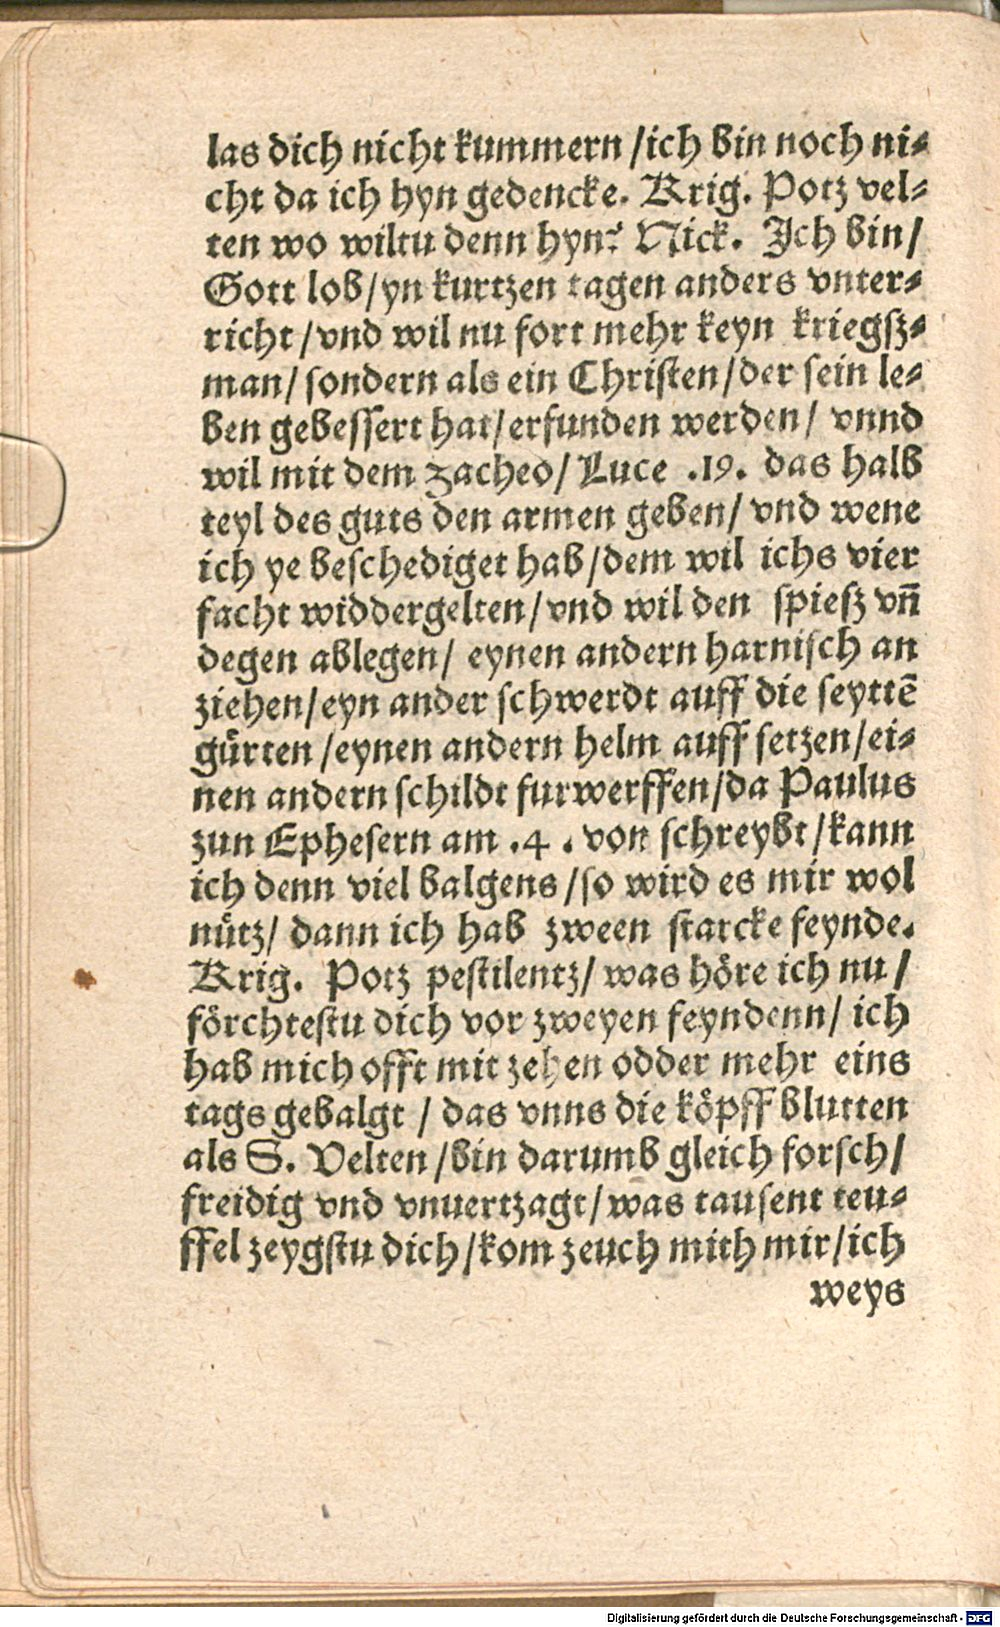 las dich nicht kummern /ich bin noch ni⸗
cht da ich hyn gedencke. Krig. Potz vel⸗
ten wo wiltu denn hyn? Nick. Jch bin/
Gott lob/yn kurtzen tagen anders vnter⸗
richt /vnd wil nu fort mehr keyn kriegſz⸗
man/ ſondern als ein Chriſten/der ſein le⸗
ben gebeſſert hat/erfunden werden/ vnnd
wil mit dem zacheo/ Luce .19. das halb
teyl des guts den armen geben/ vnd wene
ich ye beſchediget hab/dem wil ichs vier
facht widdergelten/vnd wil den ſpieſz vn̄
degen ablegen/ eynen andern harniſch an
ziehen/eyn ander ſchwerdt auff die ſeyttē
gůrten /eynen andern helm auff ſetzen/ei⸗
nen andern ſchildt furwerffen/da Paulus
zun Epheſern am .4. von ſchreybt/kann
ich denn viel balgens /ſo wird es mir wol
nůtz/ dann ich hab zween ſtarcke feynde.
Krig. Potz peſtilentz/ was höre ich nu /
förchteſtu dich vor zweyen feyndenn/ ich
hab mich offt mit zehen odder mehr eins
tags gebalgt / das vnns die köpff blutten
als S. Velten /bin darumb gleich forſch/
freidig vnd vnuertzagt/was tauſent teu⸗
ffel zeygſtu dich/kom zeuch mith mir/ich
weys
Digitalisierung gefördert durch die Deutsche Forschungsgemeinschaft - DFG